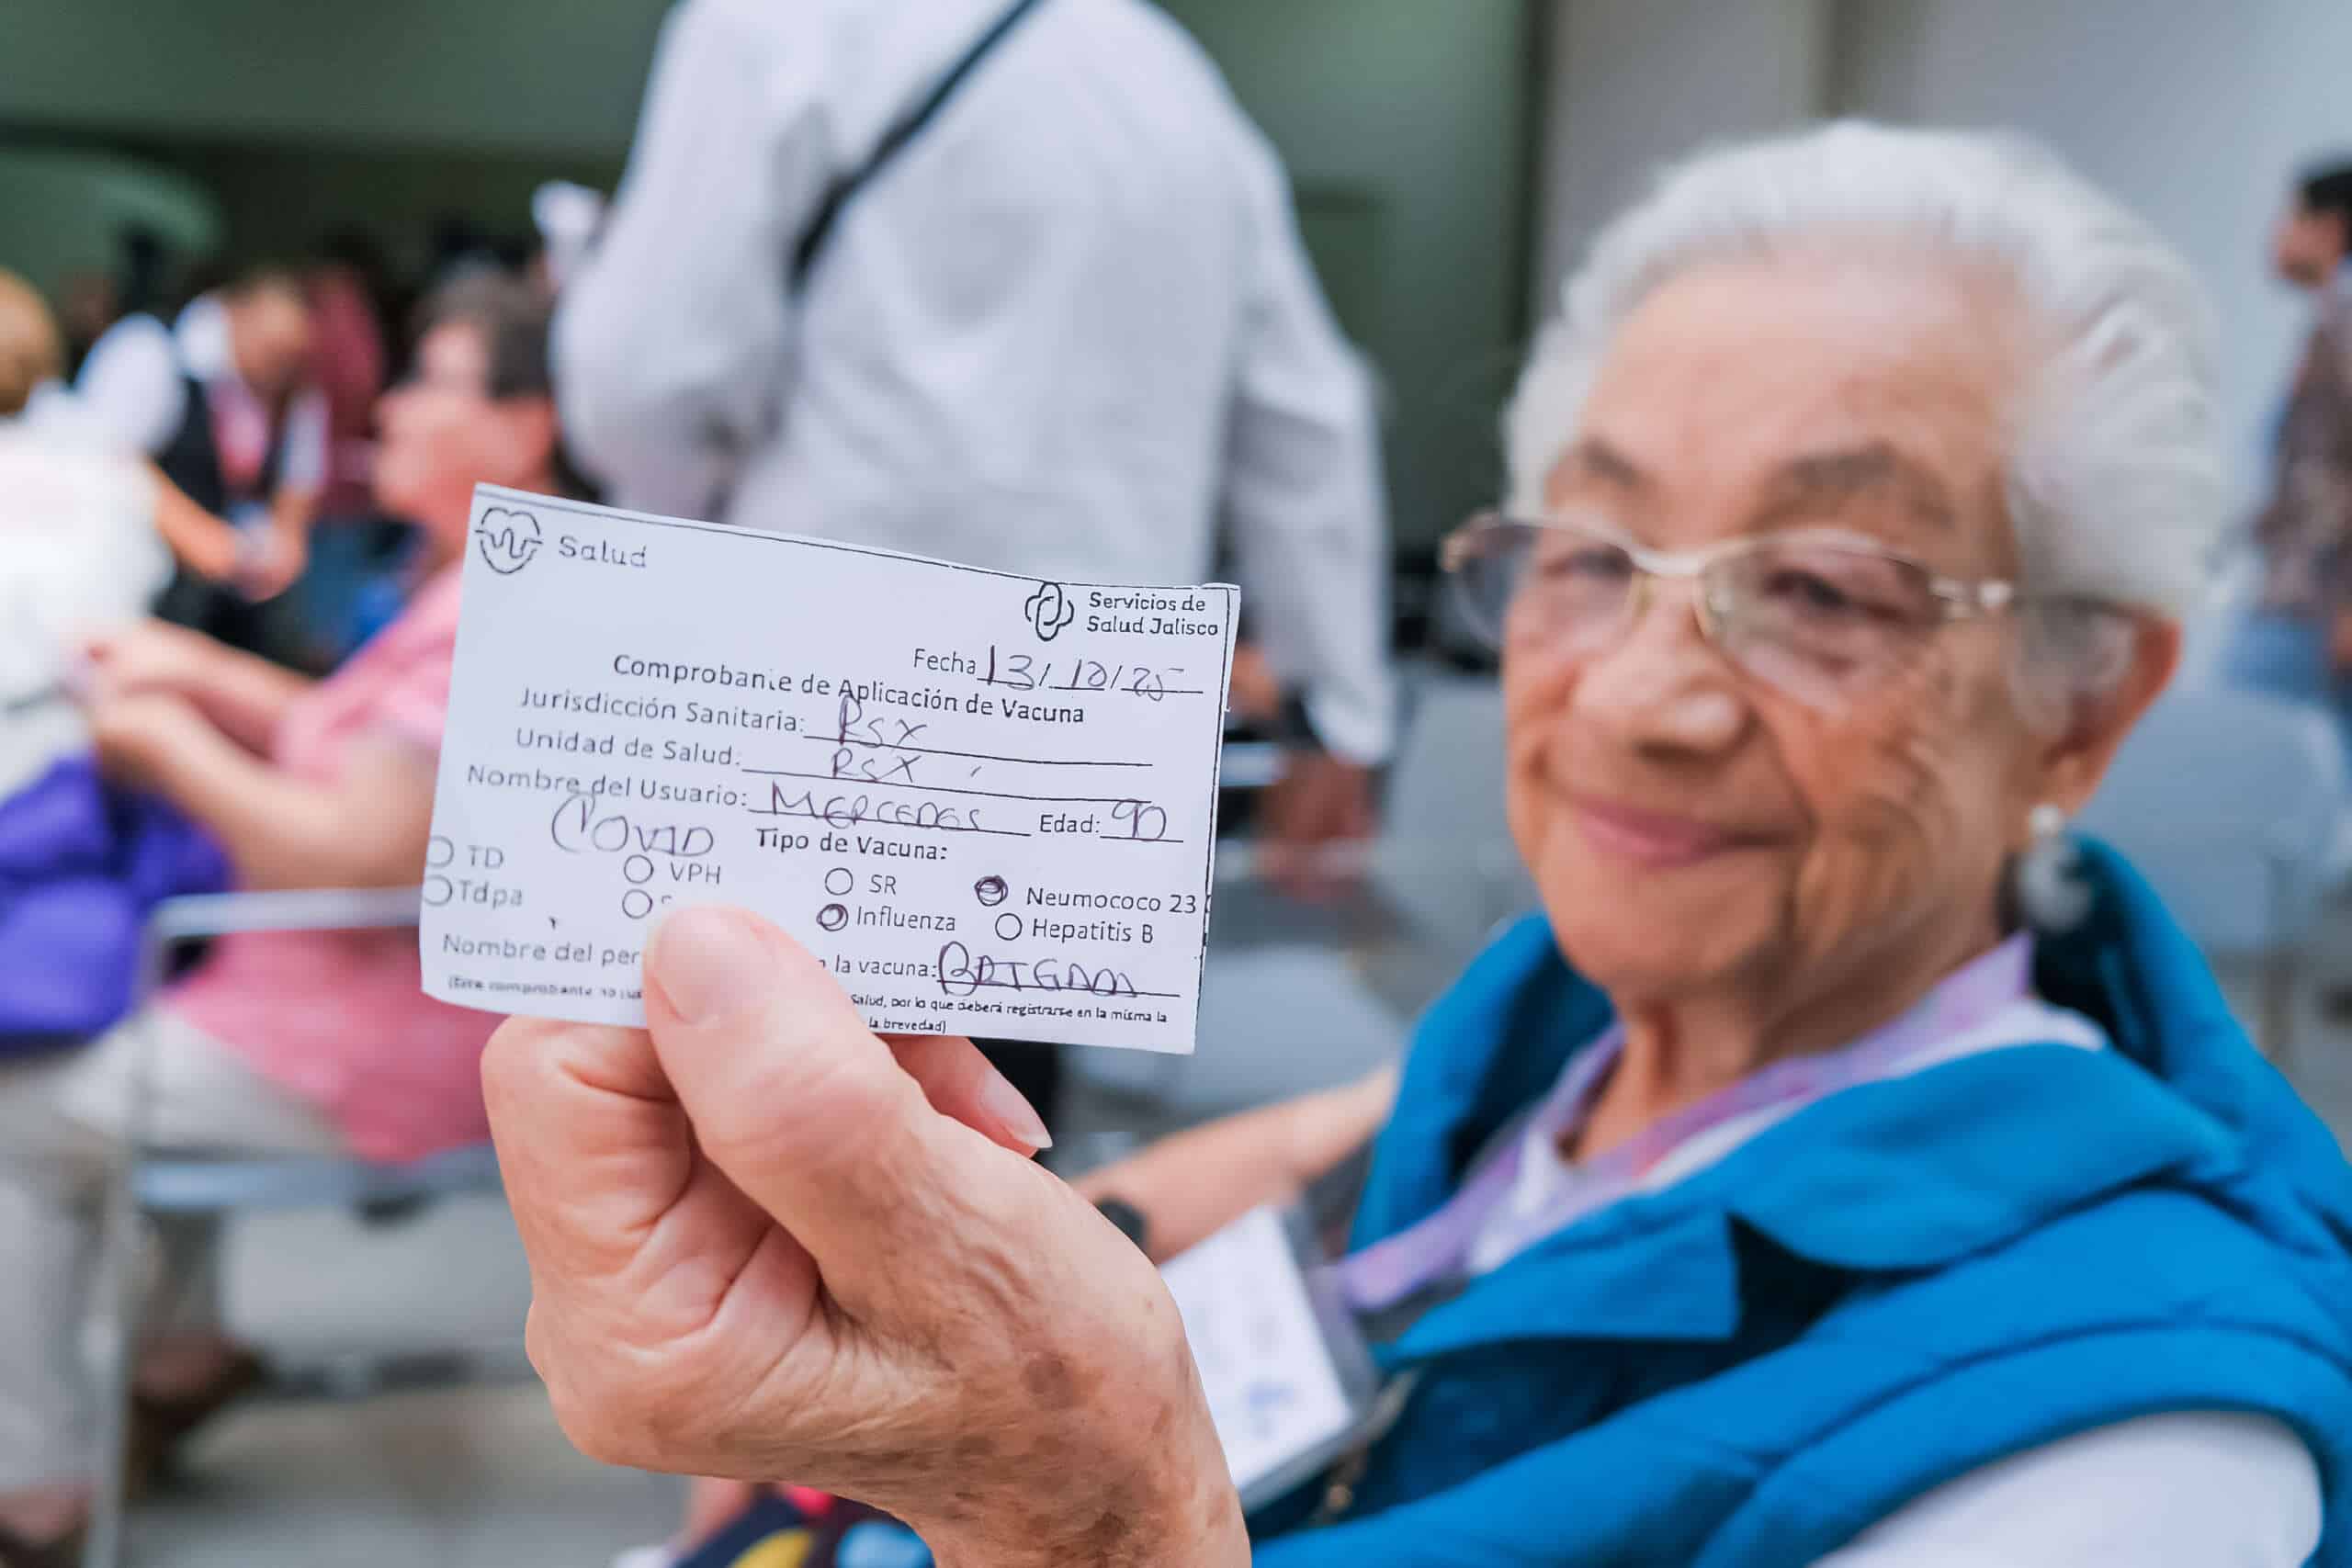 Salud
Servicios de
Salud Jalisco
Fecha 13/10/25
Comprobante de Aplicación de Vacuna
Jurisdicción Sanitaria: RSX
Unidad de Salud: RSX
Nombre del Usuario: MERCEDES Edad: 90
COVID Tipo de Vacuna:
TD VPH SR Neumococo 23
Tdpa Influenza Hepatitis B
Nombre del per la vacuna:
(Este comprobante no Salud, por lo que deberá registrarse en la misma la
la brevedad)